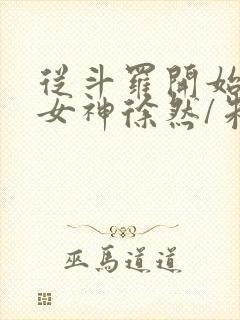 從斗羅開始
女神徐然/
巫馬道道